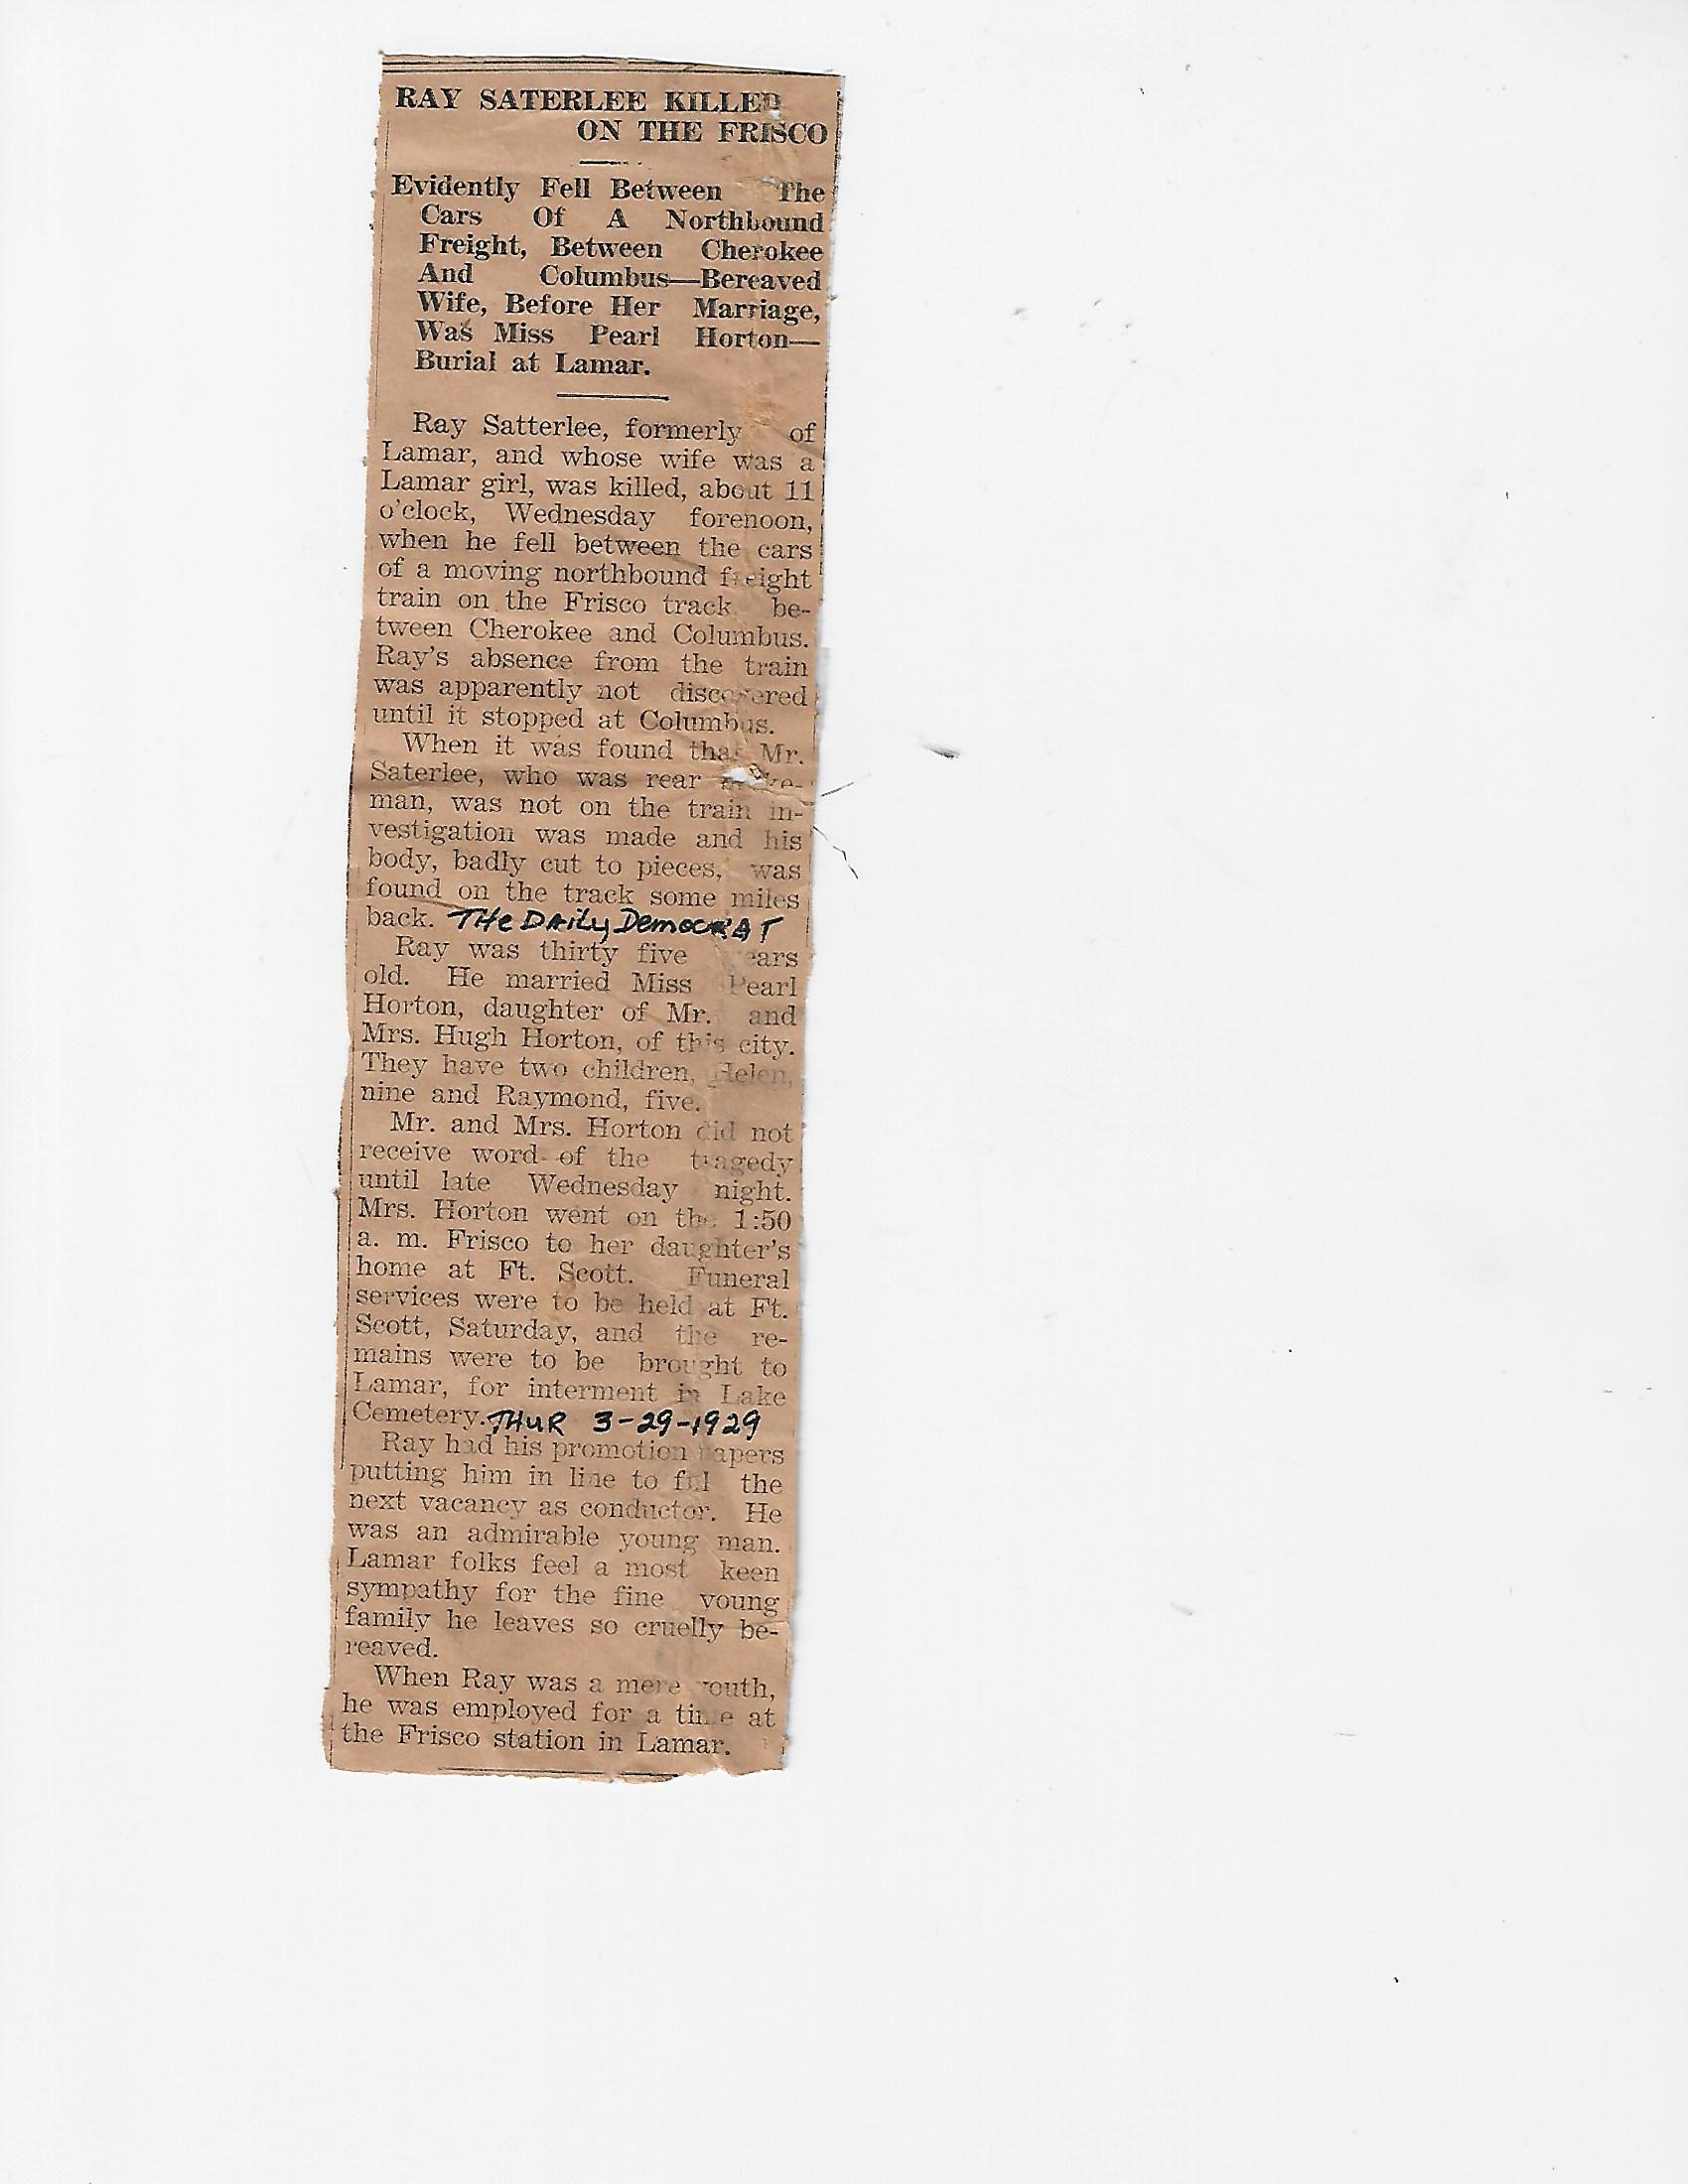 RAY SATERLEE KILLED
ON THE FRISCO
Evidently Fell Between The
Cars Of A Northbound
Freight, Between Cherokee
And Columbus—Bereaved
Wife, Before Her Marriage,
Was Miss Pearl Horton—
Burial at Lamar.
Ray Satterlee, formerly of
Lamar, and whose wife was a
Lamar girl, was killed, about 11
o'clock, Wednesday forenoon,
when he fell between the cars
of a moving northbound freight
train on the Frisco track be-
tween Cherokee and Columbus.
Ray's absence from the train
was apparently not discovered
until it stopped at Columbus.
When it was found that Mr.
Saterlee, who was rear
man, was not on the train in-
vestigation was made and his
body, badly cut to pieces, was
found on the track some miles
back. THe DAiLy DemocRAT
Ray was thirty five years
old. He married Miss Pearl
Horton, daughter of Mr. and
Mrs. Hugh Horton, of this city.
They have two children, Helen,
nine and Raymond, five.
Mr. and Mrs. Horton did not
receive word of the tragedy
until late Wednesday night.
Mrs. Horton went on the 1:50
a. m. Frisco to her daughter's
home at Ft. Scott. Funeral
services were to be held at Ft.
Scott, Saturday, and the re-
mains were to be brought to
Lamar, for interment in Lake
Cemetery. THUR 3-29-1929
Ray had his promotion papers
putting him in line to fill the
next vacancy as conductor. He
was an admirable young man.
Lamar folks feel a most keen
sympathy for the fine young
family he leaves so cruelly be-
reaved.
When Ray was a mere youth,
he was employed for a time at
the Frisco station in Lamar.